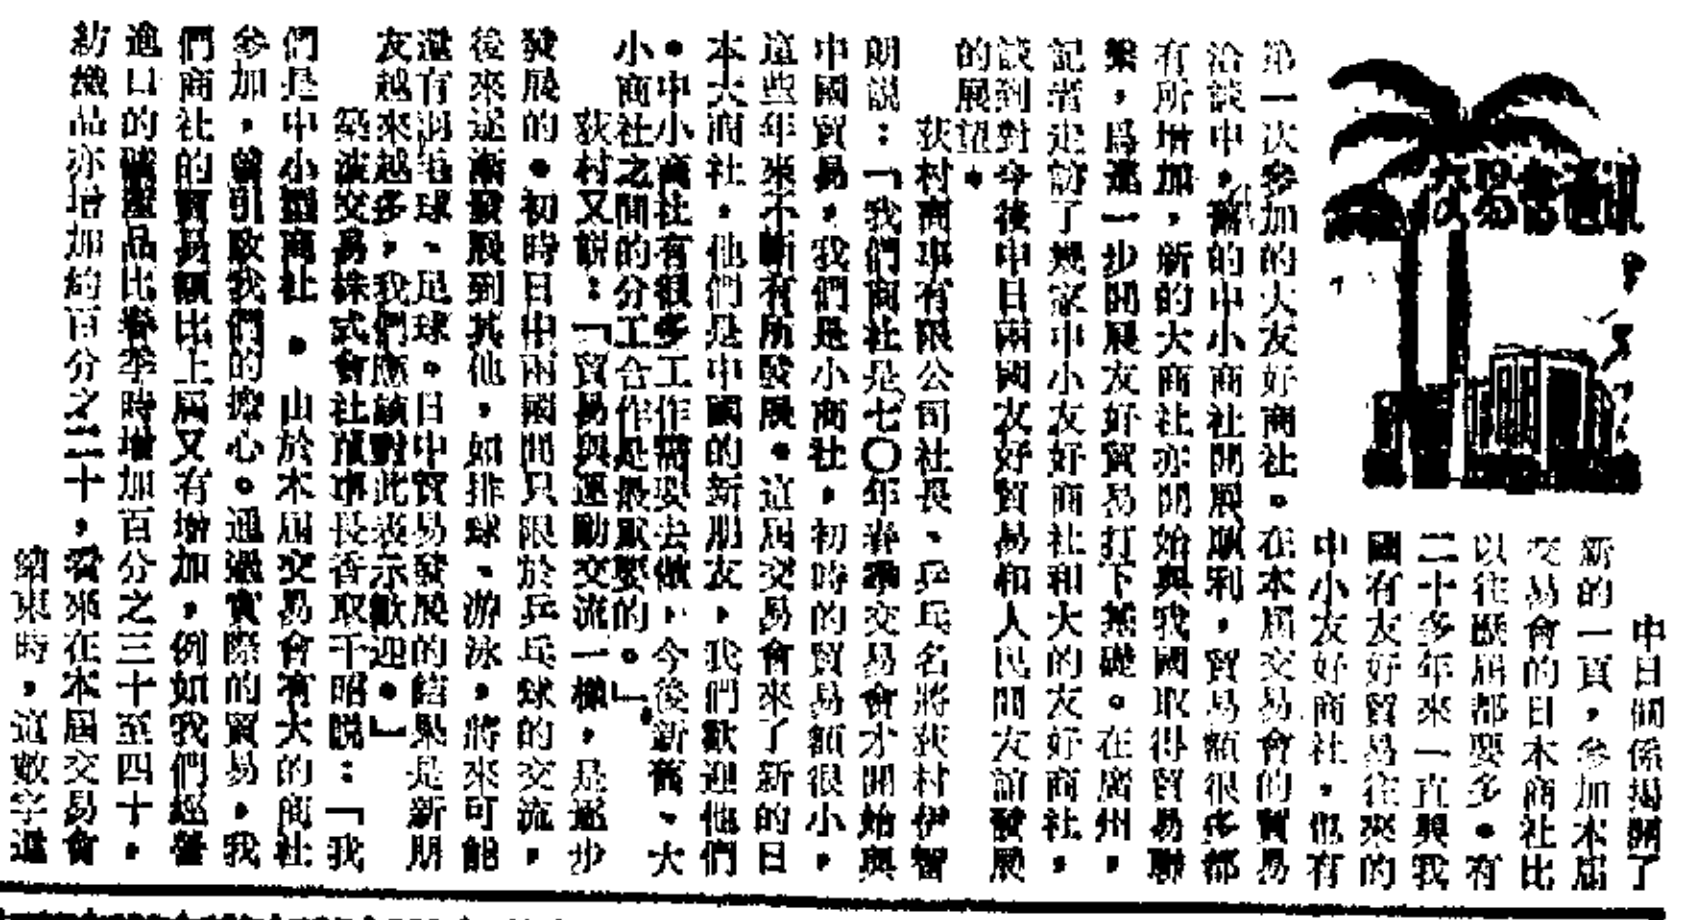 交易會通訊
中日關係揭開了
新的一頁，參加本屆
交易會的日本商社比
以往歷屆都要多。有
二十多年來一直與我
國有友好貿易往來的
中小友好商社，也有
第一次參加的大友好商社。在本屆交易會的貿易
洽談中，舊的中小商社開展順利，貿易額很多都
有所增加，新的大商社亦開始與我國取得貿易聯
繫，爲進一步開展友好貿易打下基礎。在廣州，
記者走訪了幾家中小友好商社和大的友好商社，
談到對今後中日兩國友好貿易和人民間友誼發展
的展望。
荻村商事有限公司社長、乒乓名將荻村伊智
朗說：「我們商社是七〇年春季交易會才開始與
中國貿易，我們是小商社，初時的貿易額很小，
這些年來不斷有所發展。這屆交易會來了新的日
本大商社，他們是中國的新朋友，我們歡迎他們
。中小商社有很多工作需要去做，今後新舊、大
小商社之間的分工合作是最重要的。」
荻村又說：「貿易與運動交流一樣，是逐步
發展的。初時日中兩國間只限於乒乓球的交流，
後來逐漸發展到其他，如排球、游泳，將來可能
還有羽毛球、足球。日中貿易發展的結果是新朋
友越來越多，我們應該對此表示歡迎。」
築波交易株式會社董事長香取千昭說：「我
們是中小型商社。由於本屆交易會有大的商社
參加，曾引致我們的擔心。通過實際的貿易，我
們商社的貿易額比上屆又有增加，例如我們經營
進口的礦產品比春季時增加百分之三十至四十，
紡織品亦增加約百分之二十，看來在本屆交易會
結束時，這數字還